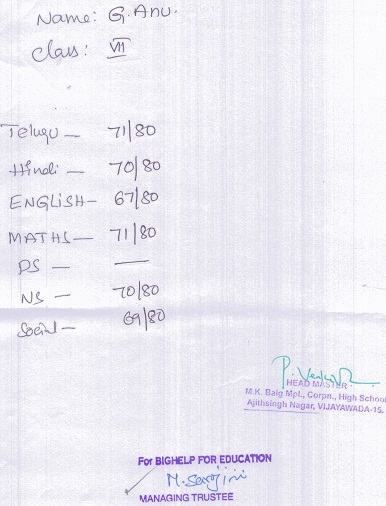 Name: G. Anu.
Class: VII
Telugu — 71/80
Hindi — 70/80
ENGLISH — 67/80
MATHS — 71/80
PS — —
NS — 70/80
Social — 69/80
HEAD MASTER
M.K. Baig Mpl., Corpn., High School
Ajithsingh Nagar, VIJAYAWADA-15.
For BIGHELP FOR EDUCATION
M. Sarojini
MANAGING TRUSTEE